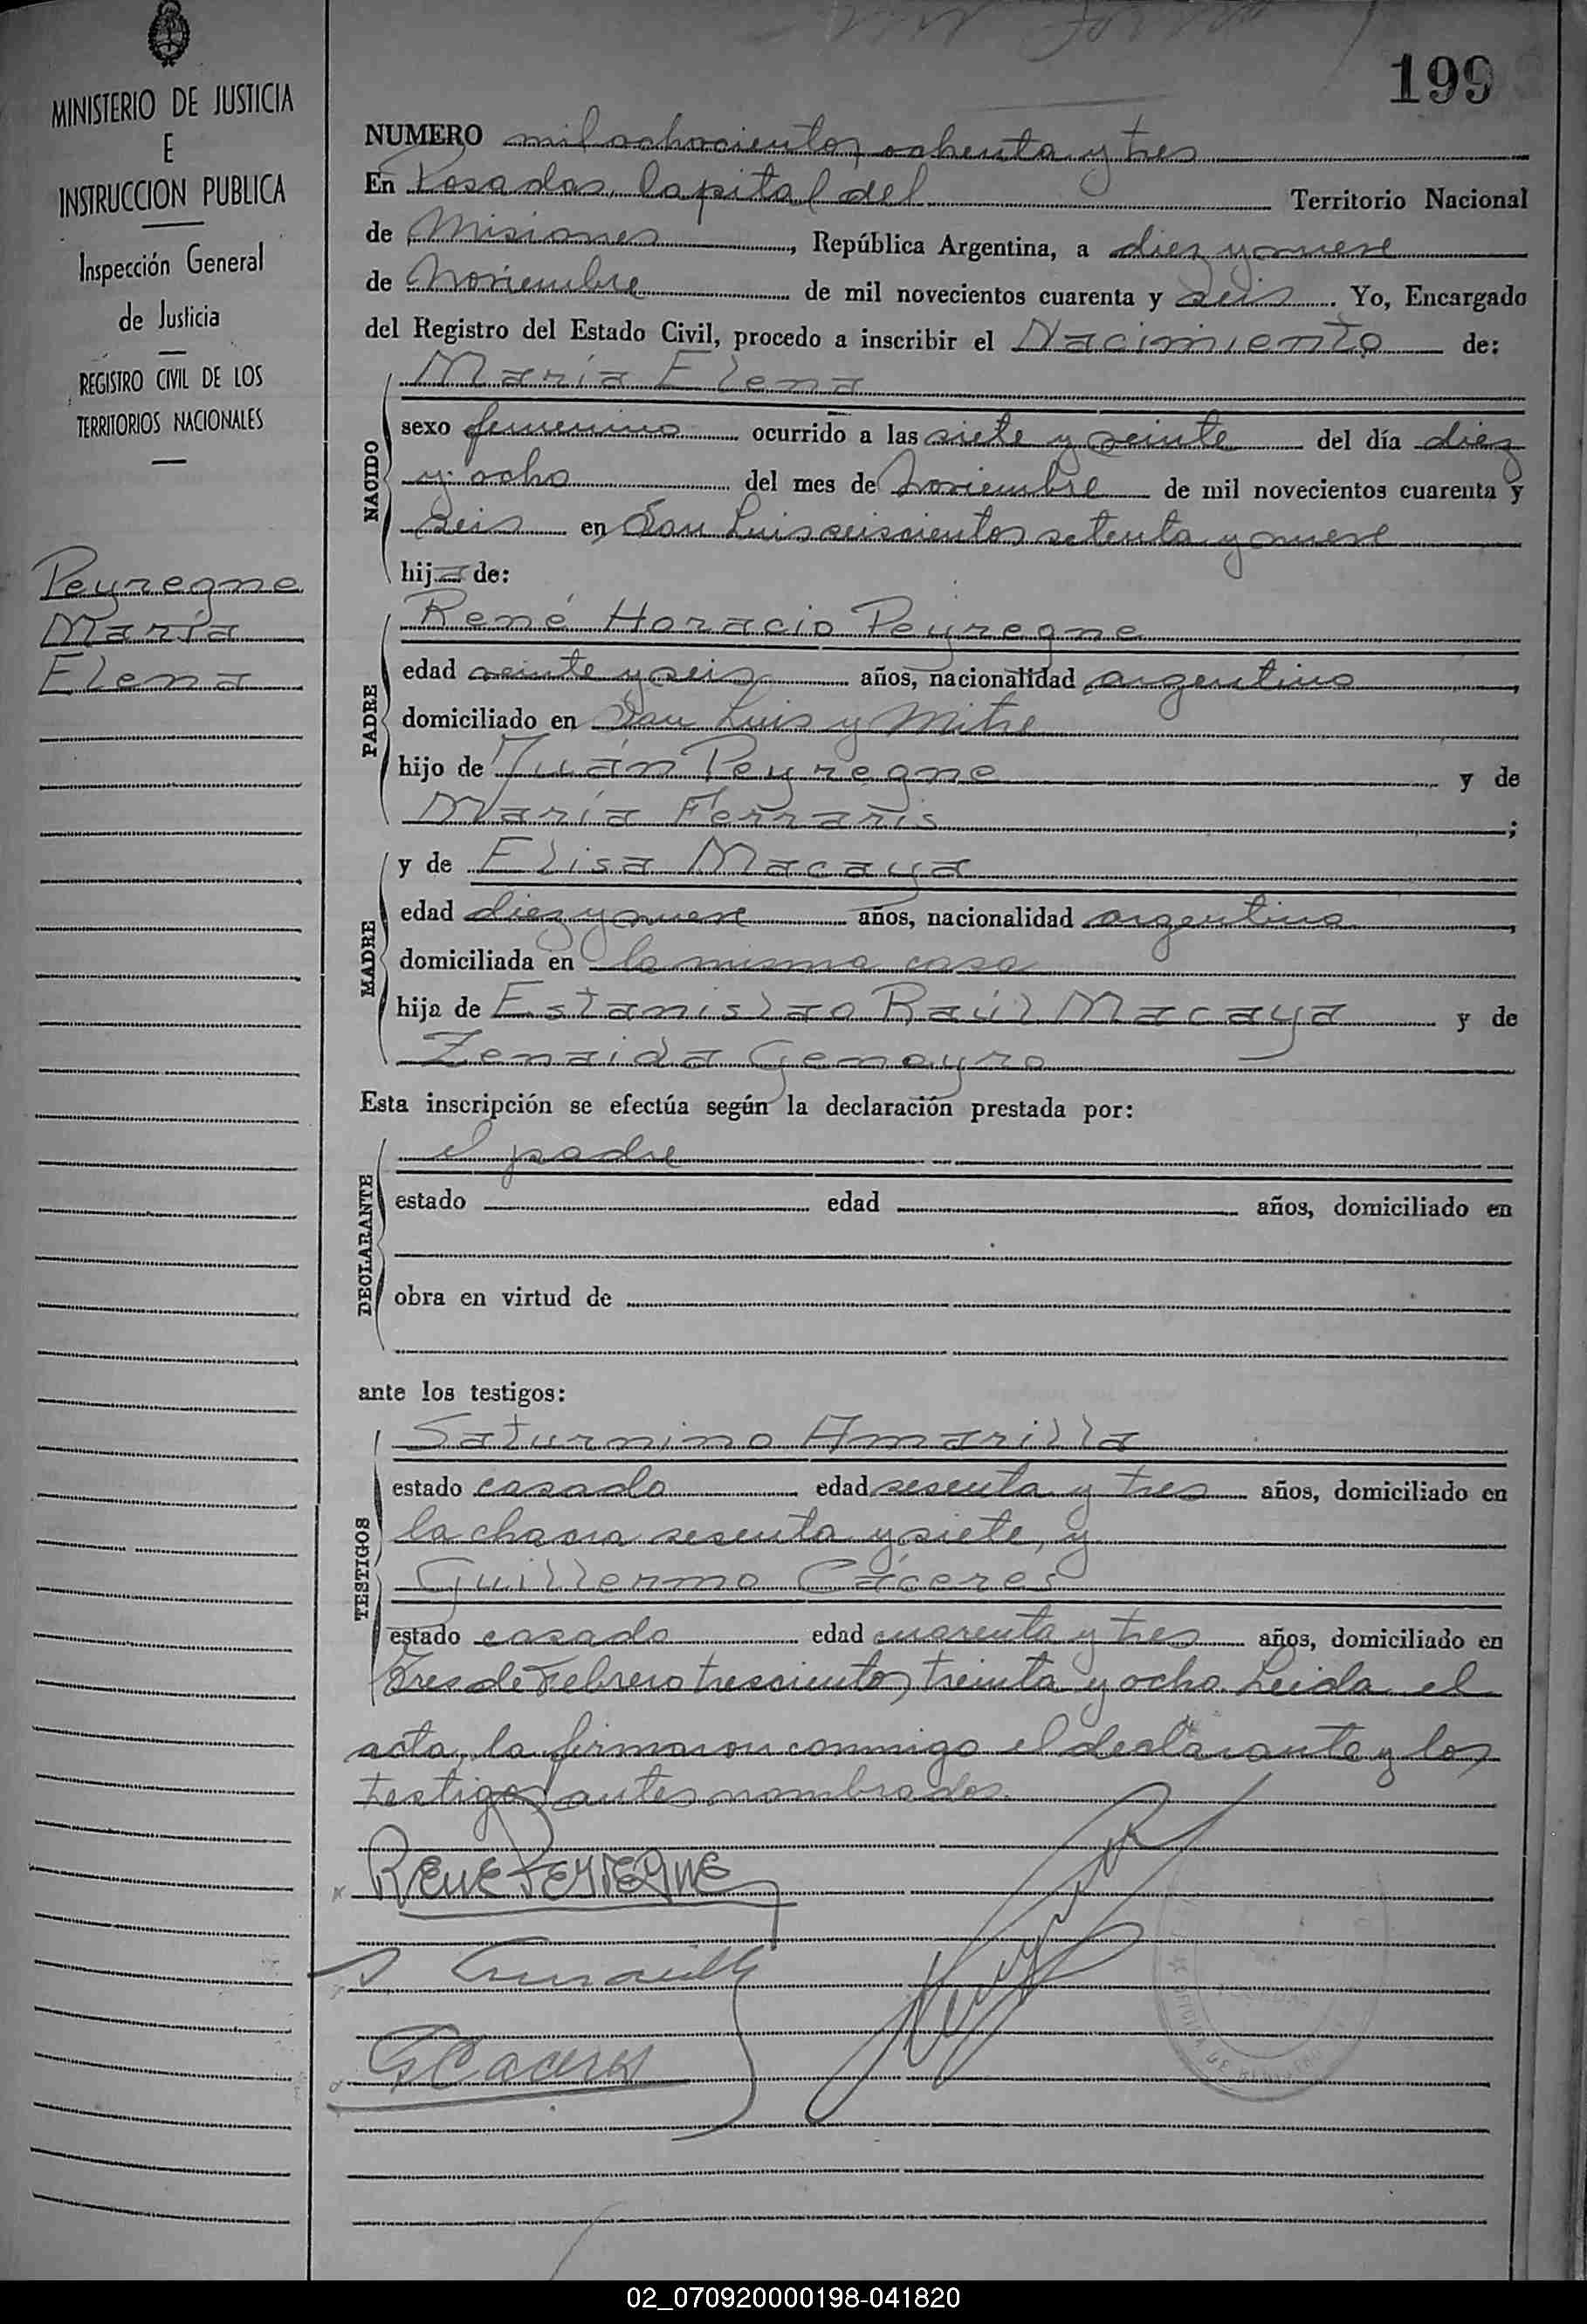 199
MINISTERIO DE JUSTICIA
E
INSTRUCCION PUBLICA
Inspección General
de Justicia
REGISTRO CIVIL DE LOS
TERRITORIOS NACIONALES
Peyregne
María
Elena
NUMERO mil ochocientos ochenta y tres
En Posadas, Capital del Territorio Nacional
de Misiones, República Argentina, a diez y nueve
de Noviembre de mil novecientos cuarenta y seis. Yo, Encargado
del Registro del Estado Civil, procedo a inscribir el Nacimiento de:
NACIDO
María Elena
sexo femenino ocurrido a las siete y veinte del día diez
y ocho del mes de Noviembre de mil novecientos cuarenta y
seis en San Luis seiscientos setenta y nueve
hija de:
PADRE
René Horacio Peyregne
edad veinte y seis años, nacionalidad argentino
domiciliado en San Luis y Mitre
hijo de Juán Peyregne y de
María Ferraris;
MADRE
y de Elisa Macaya
edad diez y nueve años, nacionalidad argentina
domiciliada en la misma casa
hija de Estanislao Raúl Macaya y de
Zenaida Gemayro
Esta inscripción se efectúa según la declaración prestada por:
DECLARANTE
el padre
estado edad años, domiciliado en
obra en virtud de
ante los testigos:
TESTIGOS
Saturnino Amarilla
estado casado edad sesenta y tres años, domiciliado en
la chacra sesenta y siete, y
Guillermo Cáceres
estado casado edad cuarenta y tres años, domiciliado en
Tres de Febrero trescientos treinta y ocho. Leida el
acta, la firmaron conmigo el declarante y los
testigos antes nombrados.
RENE PEYREGNE
G Caceres
02_070920000198-041820